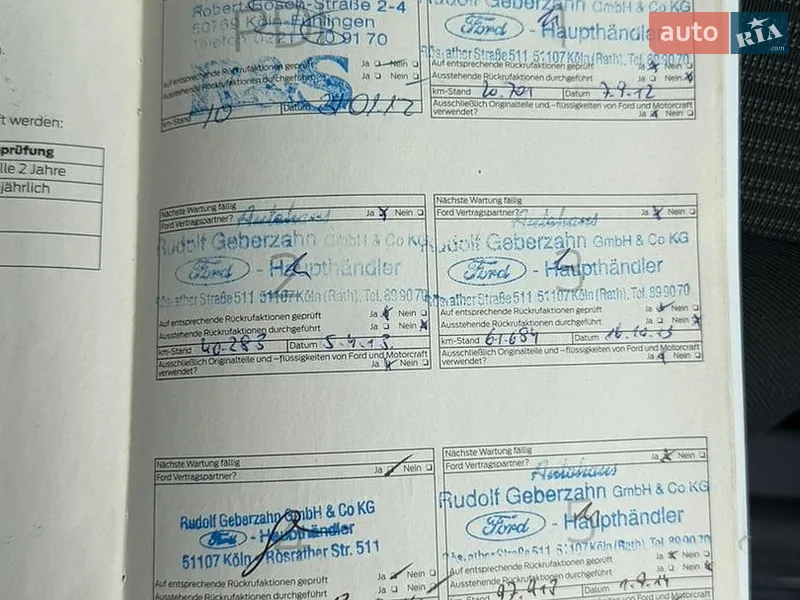 ft werden:
prüfung
lle 2 Jahre
jährlich
Robert-Bosch-Straße 2-4
50769 Köln-Fühlingen
Auf entsprechende Rückrufaktionen geprüft Ja Nein
Ausstehende Rückrufaktionen durchgeführt Ja Nein
km-Stand 10 Datum
Geberzahn GmbH & Co KG
1
Ford - Haupthändler
Rösrather Straße 511 51107 Köln (Rath), Tel. 89 90 70
Auf entsprechende Rückrufaktionen geprüft Ja Nein
Ausstehende Rückrufaktionen durchgeführt Ja Nein
km-Stand 20.701 Datum 7.9.12
Ausschließlich Originalteile und -flüssigkeiten von Ford und Motorcraft
verwendet? Ja Nein
auto RIA
.com
Nächste Wartung fällig
Ford Vertragspartner? Ja Nein
Autohaus
Rudolf Geberzahn GmbH & Co KG
2
Ford - Haupthändler
Rösrather Straße 511 51107 Köln (Rath), Tel. 89 90 70
Auf entsprechende Rückrufaktionen geprüft Ja Nein
Ausstehende Rückrufaktionen durchgeführt Ja Nein
km-Stand 40.283 Datum 5.4.13
Ausschließlich Originalteile und -flüssigkeiten von Ford und Motorcraft
verwendet? Ja Nein
Nächste Wartung fällig
Ford Vertragspartner? Ja Nein
Autohaus
Rudolf Geberzahn GmbH & Co KG
3
Ford - Haupthändler
Rösrather Straße 511 51107 Köln (Rath), Tel. 89 90 70
Auf entsprechende Rückrufaktionen geprüft Ja Nein
Ausstehende Rückrufaktionen durchgeführt Ja Nein
km-Stand 61.684 Datum 16.10.13
Ausschließlich Originalteile und -flüssigkeiten von Ford und Motorcraft
verwendet? Ja Nein
Nächste Wartung fällig
Ford Vertragspartner? Ja Nein
Rudolf Geberzahn GmbH & Co KG
Ford - Haupthändler
51107 Köln, Rösrather Str. 511
Auf entsprechende Rückrufaktionen geprüft Ja Nein
Ausstehende Rückrufaktionen durchgeführt Ja Nein
Nächste Wartung fällig
Ford Vertragspartner? Ja Nein
Autohaus
Rudolf Geberzahn GmbH & Co KG
5
Ford - Haupthändler
Rösrather Straße 511 51107 Köln (Rath), Tel. 89 90 70
Auf entsprechende Rückrufaktionen geprüft Ja Nein
Ausstehende Rückrufaktionen durchgeführt Ja Nein
km-Stand 97.913 Datum 1.9.14